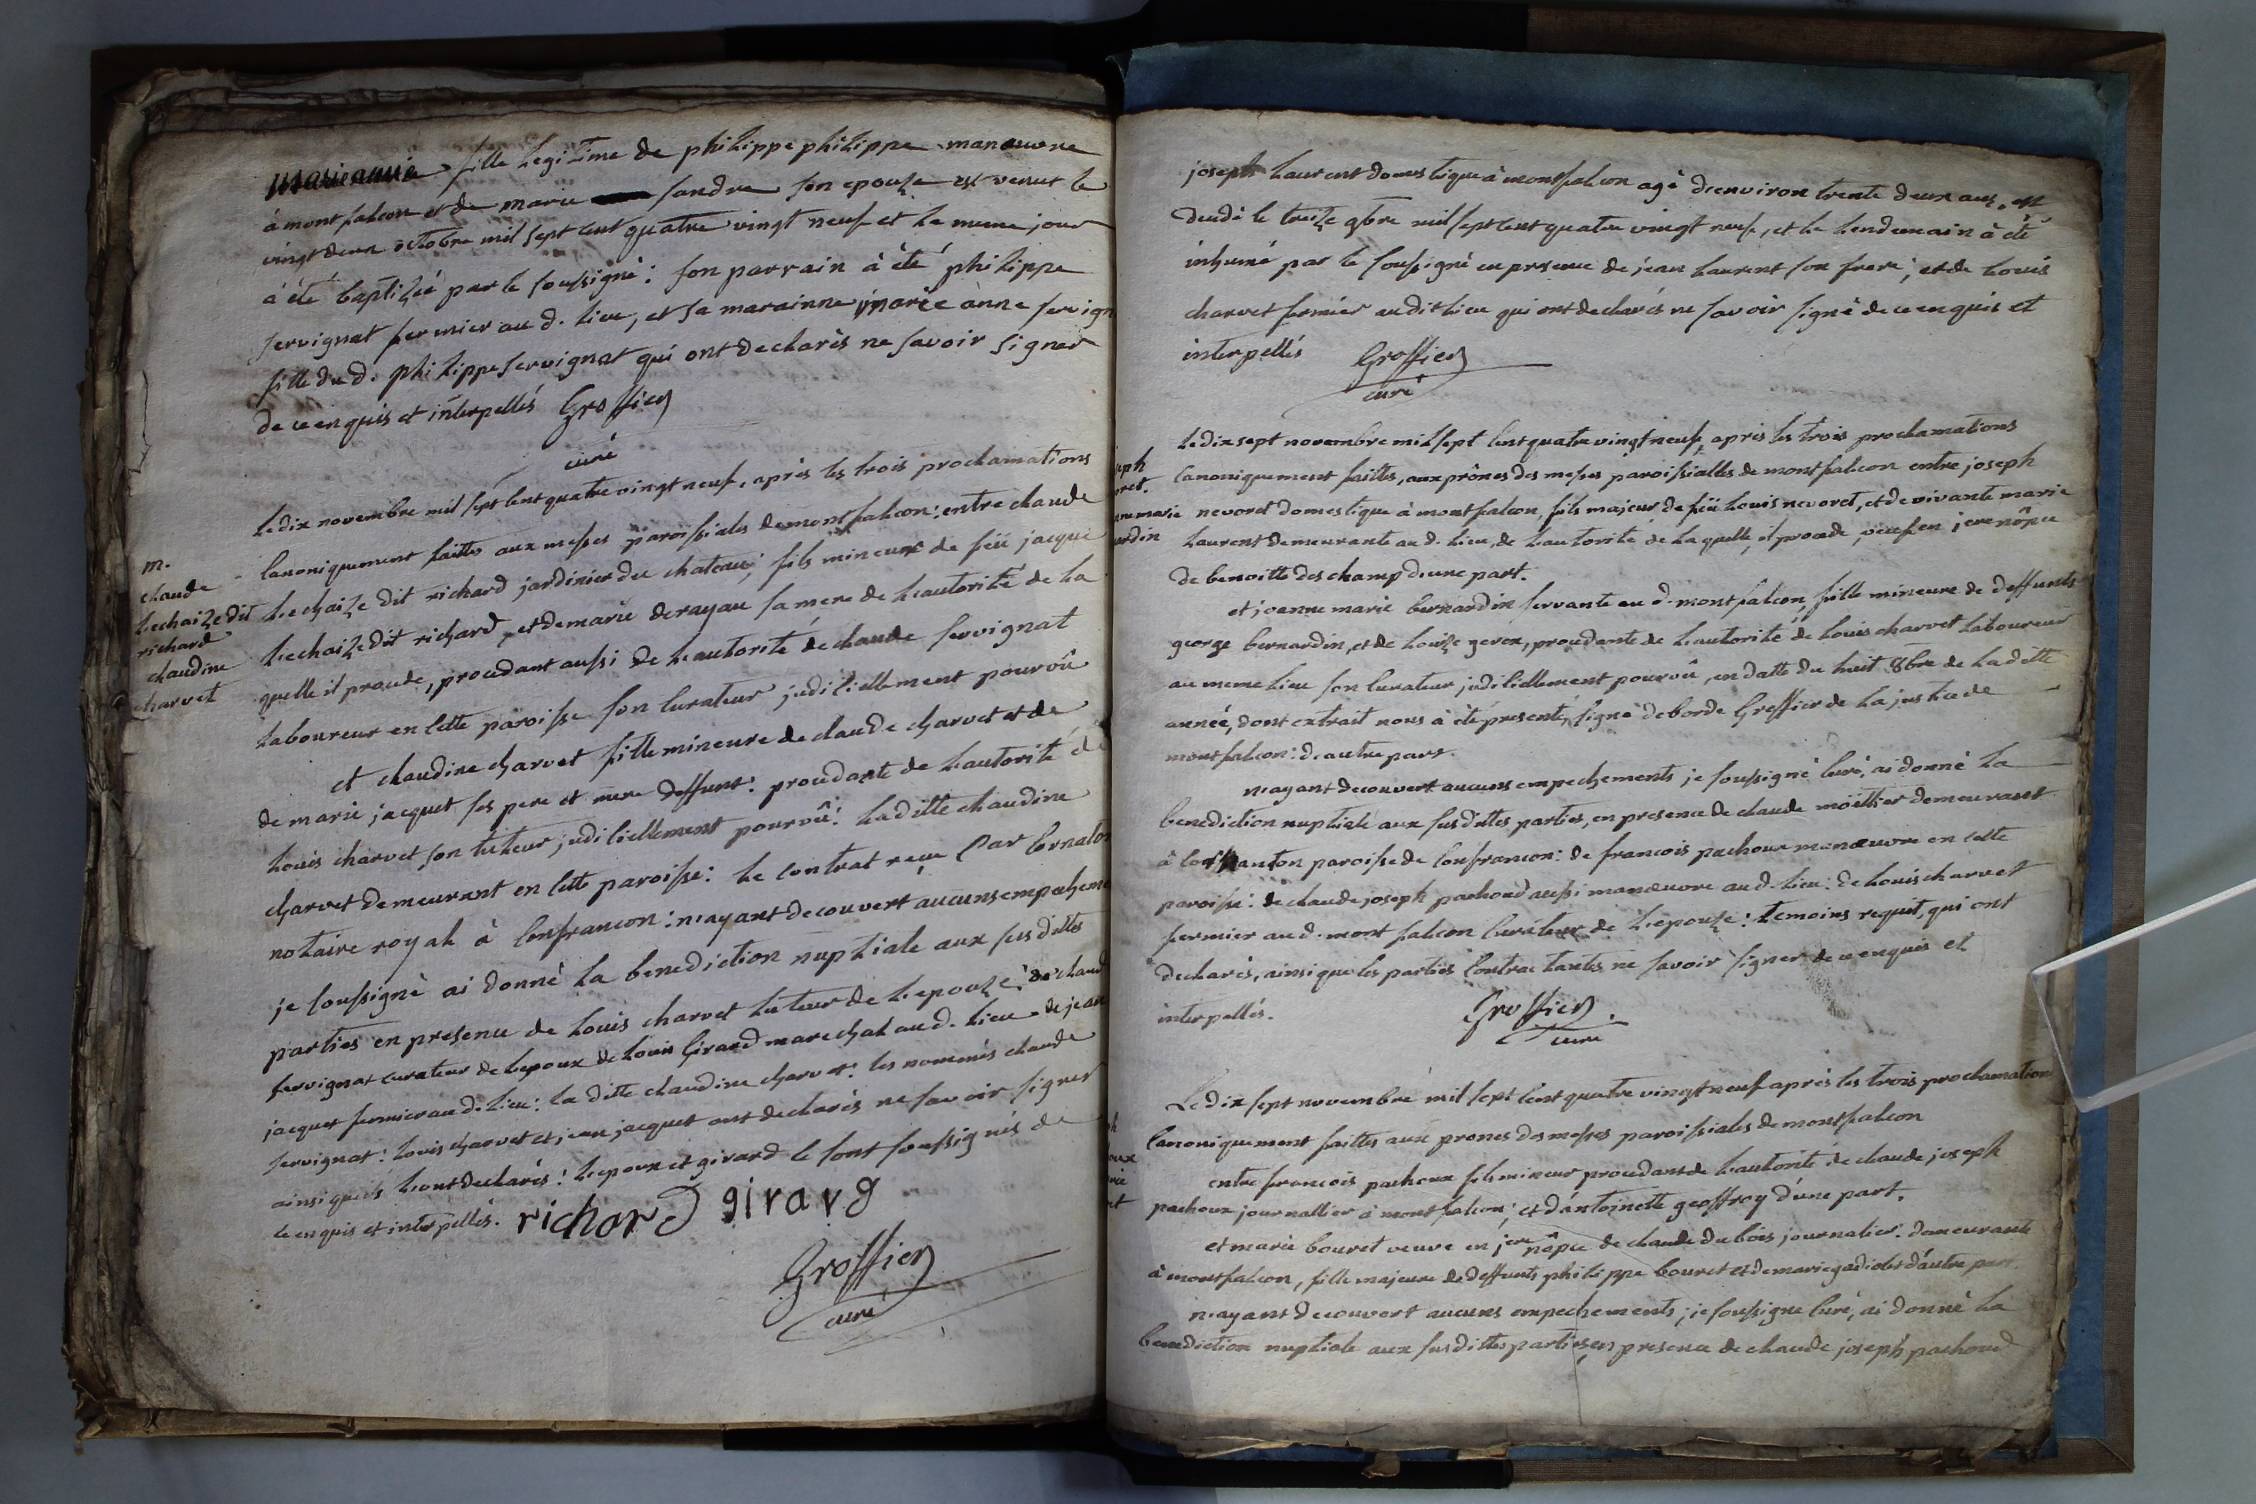 marieanne fille legitime de philippe philippe manœuvre
à montfalcon et de marie fandre son epouse est venue le
vingt deux octobre mil sept cent quatre vingt neuf et le meme jour
a été baptizée par le soussigné: son parrain à été philippe
servignat fermier au d. lieu, et sa marainne marie anne servign
fille du d. philippe servignat qui ont declarés ne savoir signer
de ce enquis et interpellés Groffier
curé
le dix novembre mil sept cent quatre vingt neuf, après les trois proclamations
canoniquement faittes aux messes paroissiales de montfalcon: entre claude
lechaize dit richard jardinier du chateau, fils mineur de feü jacque
lechaize dit richard, et de marie derayau sa mere de l'autorité de la
quelle il procede, procedant aussi de l'autorité de claude servignat
laboureur en cette paroisse son curateur judiciellement pourvû
m.
claude
lechaize dit
richard
claudine
charvet
et claudine charvet fille mineure de claude charvet et de
de marie jacquet ses pere et mere deffunt: procedante de l'autorité de
louis charvet son tuteur judiciellement pourvû: laditte claudine
charvet demeurant en cette paroisse: le contrat reçu par cornaton
notaire royal à confrancon: n'ayant decouvert aucuns empecheme
je soussigné ai donné la benediction nuptiale aux susdittes
parties en presence de louis charvet tuteur de l'epouze: de claud
servignat curateur de l'epoux de louis Girard marechal au d. lieu de jean
jacquet fermier au d. lieu: la ditte claudine charvet: les nommés claude
servignat: louis charvet et jean jacquet ont declarés ne savoir signer
ainsi qu'ils l'ont declarés: l'epoux et girard le sont soussignés de
ce enquis et interpellés. richard girard
Groffier
curé
joseph laurent domestique à montfalcon agé d'environ trente deux ans, est
decedé le treize 9bre mil sept cent quatre vingt neuf, et le lendemain à été
inhumé par le soussigné en presence de jean laurent son frere; et de louis
charvet fermier audit lieu qui ont declarés ne savoir signé de ce enquis et
interpellés Groffier
curé
le dix sept novembre mil sept cent quatre vingt neuf, après les trois proclamations
canoniquement faittes, aux prônes des messes paroissialles de montfalcon entre joseph
nevoret domestique à montfalcon, fils majeur de feü louis nevoret, et de vivante marie
laurent demeurante au d. lieu, de l'autorité de laquelle, il procede, veuf en jere nôpce
de benoitte deschamp d'une part.
eph
oret.
nne marie
ardin
et jeanne marie bernardin servante au d. montfalcon, fille mineure de deffunts
george bernardin, et de louize gerox, procedante de l'autorité de louis charvet laboureur
au meme lieu son curateur judiciellement pourvû, en datte du huit 8bre de laditte
année, dont extrait nous à été presenté, signé deborde Greffier de la justice de
montfalcon: d'autre part.
n'ayant decouvert aucuns empechements je soussigné curé, ai donné la
benediction nuptiale aux susdittes parties, en presence de claude moëllier demeurant
à paroisse de confrancon: de francois pachoux manœuvre en cette
paroisse: de claude joseph pachoud aussi manœuvre au d. lieu: de louis charvet
fermier au d. montfalcon curateur de l'epouze: temoins requit, qui ont
declarés, ainsi que les parties contractantes ne savoir signer de ce enquis et
interpellés.
Groffier.
curé
Le dix sept novembre mil sept cent quatre vingt neuf après les trois proclamations
canoniquement faittes aux prones des messes paroissiales de montfalcon
entre francois pachoux fils mineur procedant de l'autorité de claude joseph
pachoux journallier à montfalcon; et d'antoinette geoffroy d'une part.
h
oux
rie
et
et marie bouret veuve en jere nôpce de claude dubois journalier. demeurante
à montfalcon, fille majeure de deffunts philippe bouret et de marie gadiolet d'autre part.
n'ayant decouvert aucuns empechements; je soussigné curé, ai donné la
benediction nuptiale aux susdittes parties en presence de claude joseph pachoud